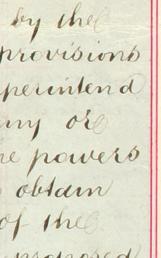 by the
provisions
perintend
any or
he powers
obtain
of the
proposed